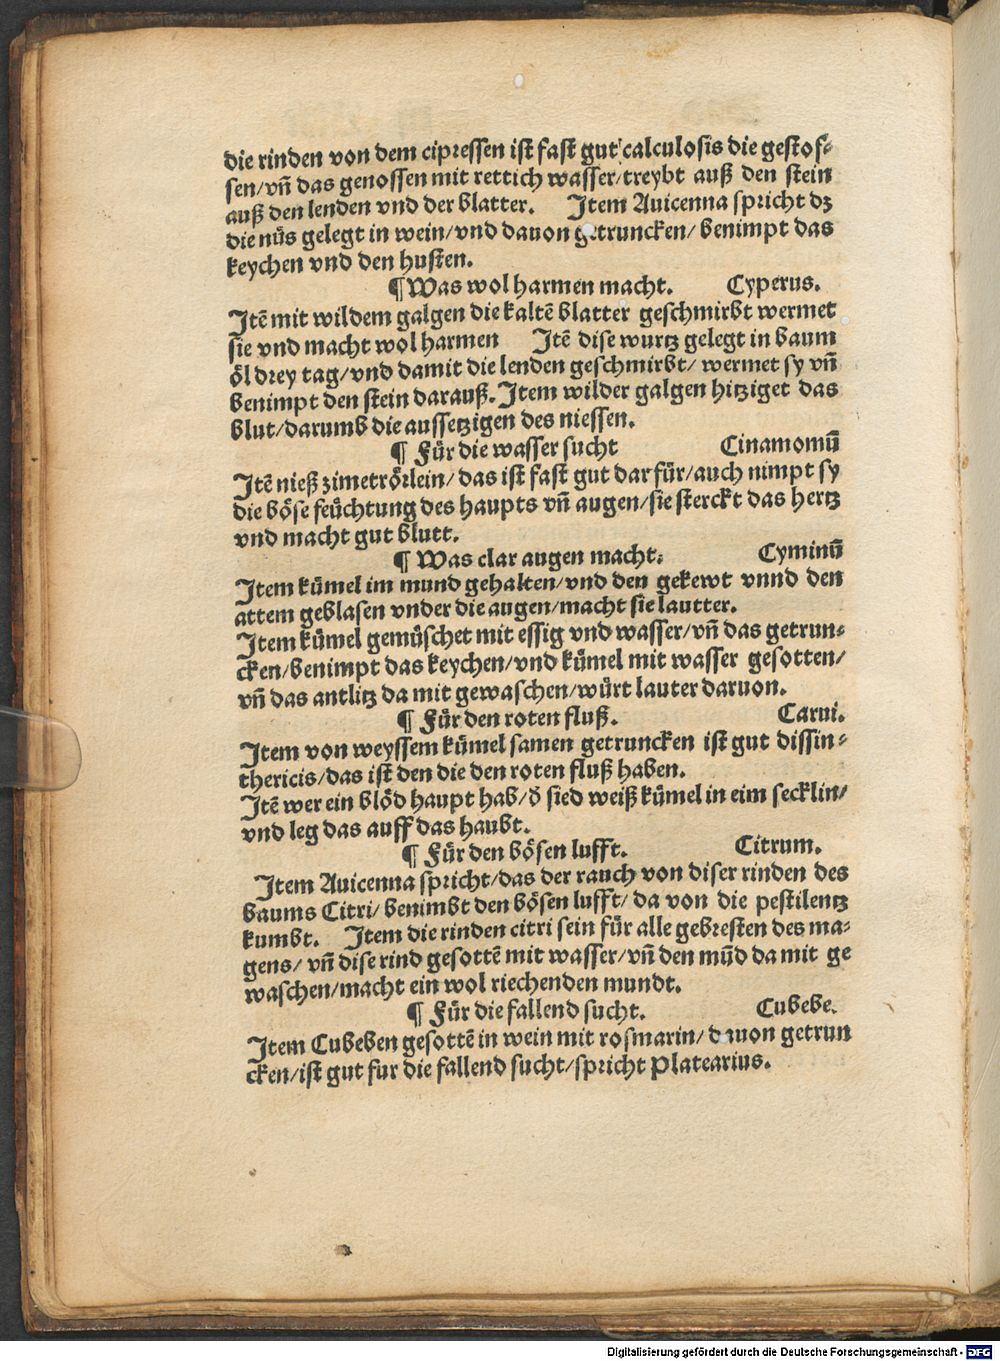 die rinden von dem cipressen ist fast gut calculosis die gestos-
sen/vn̄ das genossen mit rettich wasser/treybt auß den stein
auß den lenden vnd der blatter. Item Auicenna spricht dz
die nüs gelegt in wein/vnd dauon getruncken/ benimpt das
keychen vnd den husten.
¶ Was wol harmen macht. Cyperus.
Itē mit wildem galgen die kaltē blatter geschmirbt wermet
sie vnd macht wol harmen Itē dise wurtz gelegt in baum
öl drey tag/vnd damit die lenden geschmirbt/ wermet sy vn̄
benimpt den stein darauß. Item wilder galgen hitziget das
blut/darumb die aussetzigen des niessen.
¶ Für die wasser sucht Cinamomū
Itē nieß zimetrörlein/das ist fast gut dar für/auch nimpt sy
die böse feüchtung des haupts vn̄ augen/sie sterckt das hertz
vnd macht gut blutt.
¶ Was clar augen macht. Cyminū
Item kümel im mund gehalten/vnd den gekewt vnnd den
attem geblasen vnder die augen/macht sie lautter.
Item kümel gemüschet mit essig vnd wasser/vn̄ das getrun-
cken/benimpt das keychen/vnd kümel mit wasser gesotten/
vn̄ das antlitz da mit gewaschen/würt lauter daruon.
¶ Für den roten fluß. Carui.
Item von weyssem kümel samen getruncken ist gut dissin-
thericis/das ist den die den roten fluß haben.
Itē wer ein blöd haupt hab/d̄ sied weiß kümel in eim secklin/
vnd leg das auff das haubt.
¶ Für den bösen lufft. Citrum.
Item Auicenna spricht/das der rauch von diser rinden des
baums Citri/benimbt den bösen lufft/da von die pestilentz
kumbt. Item die rinden citri sein für alle gebresten des ma-
gens/ vn̄ dise rind gesottē mit wasser/vn̄ den mūd da mit ge
waschen/macht ein wol riechenden mundt.
¶ Für die fallend sucht. Cubebe.
Item Cubeben gesottē in wein mit rosmarin/dauon getrun
cken/ist gut fur die fallend sucht/spricht Platearius.
Digitalisierung gefördert durch die Deutsche Forschungsgemeinschaft - DFG